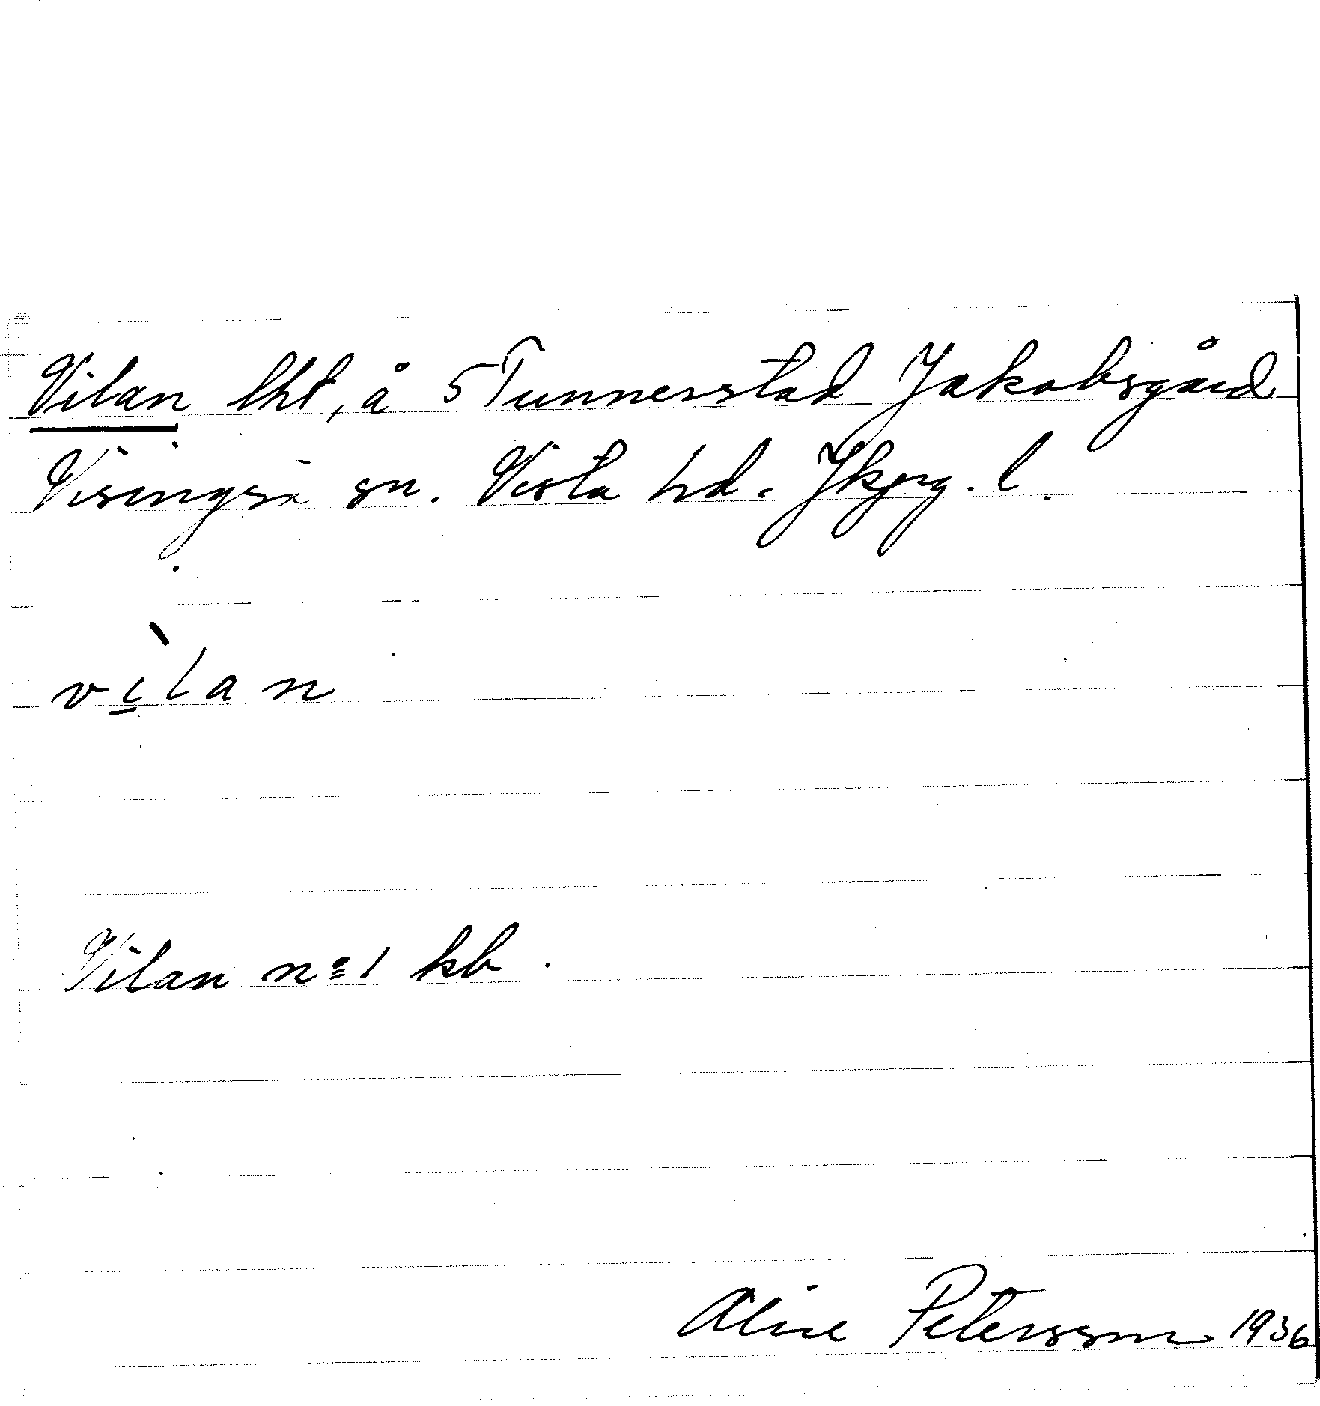 Vilan lht, å 5 Tunnerstad Jakobsgård
Visingsö sn. Vista hd. Jkpg. l.
vì̲lan
Vilan n:1 kb.
Alice Petersson 1936